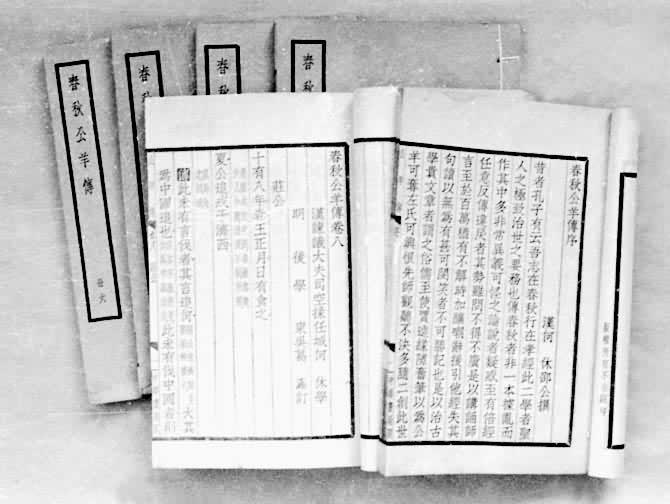 春秋公羊傳
春
春秋
春秋
春秋公羊傳序
漢何休邵公撰
昔者孔子有云吾志在春秋行在孝經此二學者聖
人之極致治世之要務也傳春秋者非一本據亂而
作其中多非常異義可怪之論說者疑惑至有倍經
任意反傳違戾者其勢雖問不得不廣是以講誦師
言至於百萬猶有不解時加釀嘲辭援引他經失其
句讀以無為有甚可閔笑者不可勝記也是以治古
學貴文章者謂之俗儒至使賈逵緣隙奮筆以為公
羊可奪左氏可興恨先師觀聽不決多隨二創此世
春秋公羊傳卷八
漢諫議大夫司空掾任城何休學
明後學東吳葛訂
莊公
十有八年春王正月日有食之
夏公追戎于濟西
此未有言伐者其言追何大其
為中國追也此未有伐中國者則